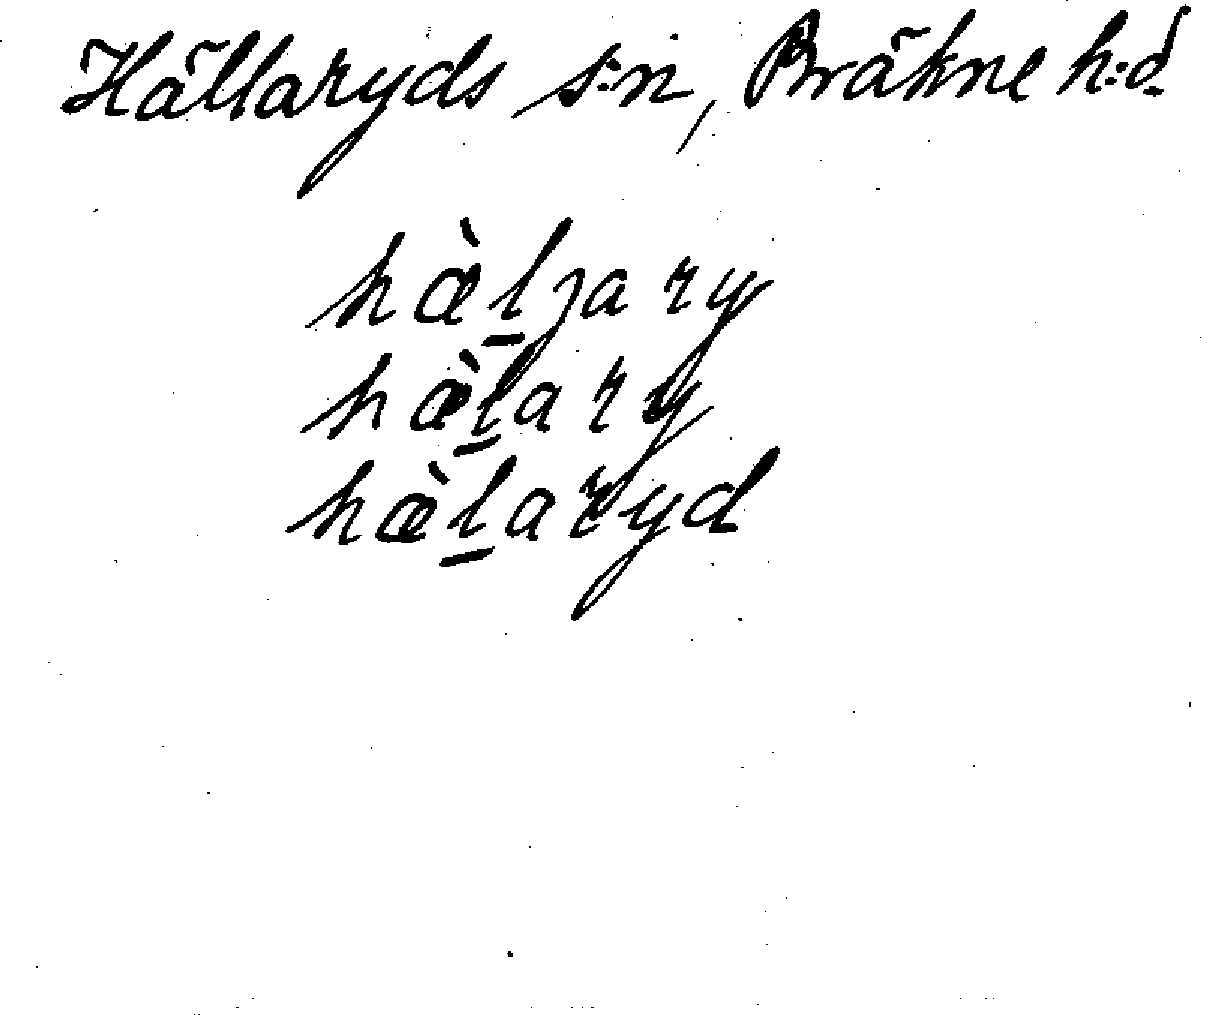 Hällaryds s:n, Bräkne h:d
hæ̀l̲jary
hæ̀l̲ary
hæ̀l̲aryd